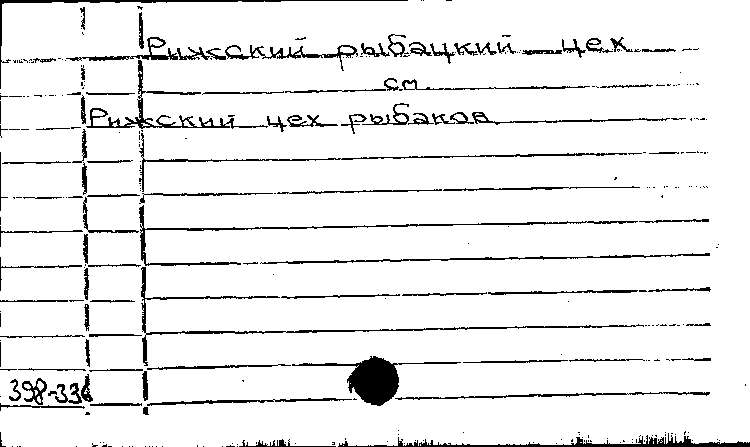 Рижский рыбацкий цех
см.
Рижский цех рыбаков.
398-336